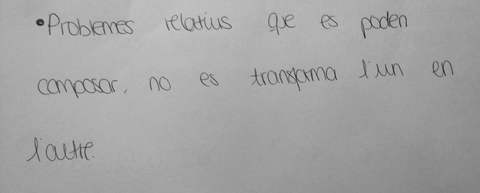 •Problemes relatius que es poden
composar, no es transforma l'un en
l'autre.